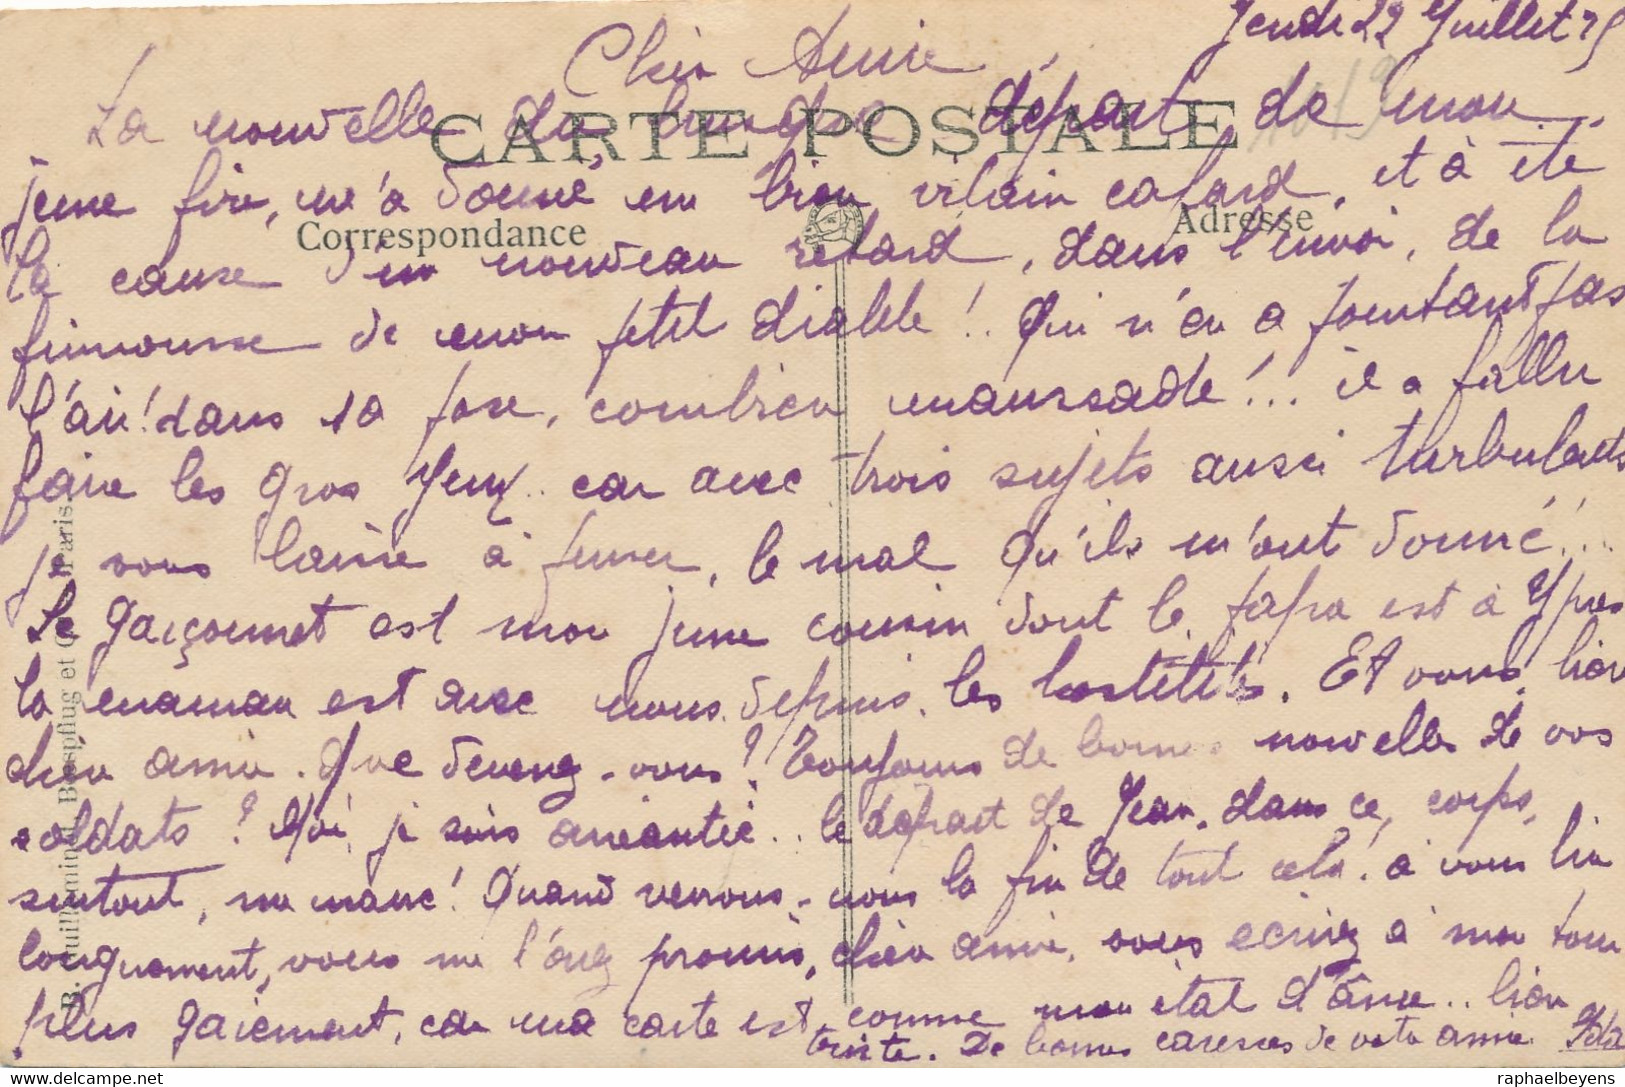 Jeudi 22 Juillet 15
Chère Amie
CARTE POSTALE
La nouvelle du brusque départ de mon
jeune frère, m'a donné un bien vilain cafard, et à été
Correspondance
Adresse
la cause d'un nouveau retard, dans l'envoi, de la
frimousse de mon petit diable!.. Qui n'en a pourtant pas
l'air! dans sa pose, combien maussade!... il a fallu
faire les gros yeux.. car avec trois sujets aussi turbulents
je vous laisse à penser, le mal qu'ils m'ont donné!...
Le garçonnet est mon jeune cousin dont le papa est à Ypres
la maman est avec nous depuis les hostilités. Et vous, bien
chère amie. Que devenez-vous? Toujours de bonnes nouvelles de vos
soldats? Moi, je suis anéantie.. le départ de Jean, dans ce, corps,
surtout, me navre! Quand verrons-nous la fin de tout cela! à vous lire
longuement, vous me l'avez promis, chère amie, vous écrirez à mon tour
plus gaiement, car ma carte est, comme mon état d'âme.. bien
triste. De bonnes caresses de votre amie
B. Guilleminot, Bœspflug et Cie Paris
raphaelbeyens